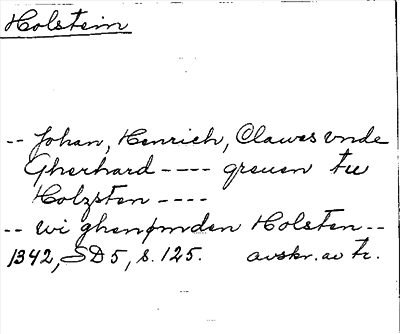 Holstein
-- Johan, Henrich, Clawes vnde
Gherhard ---- greuen tu
Holzsten ----
-- wi ghenømden Holsten --
1342, SD5, s. 125. avskr. av tr.